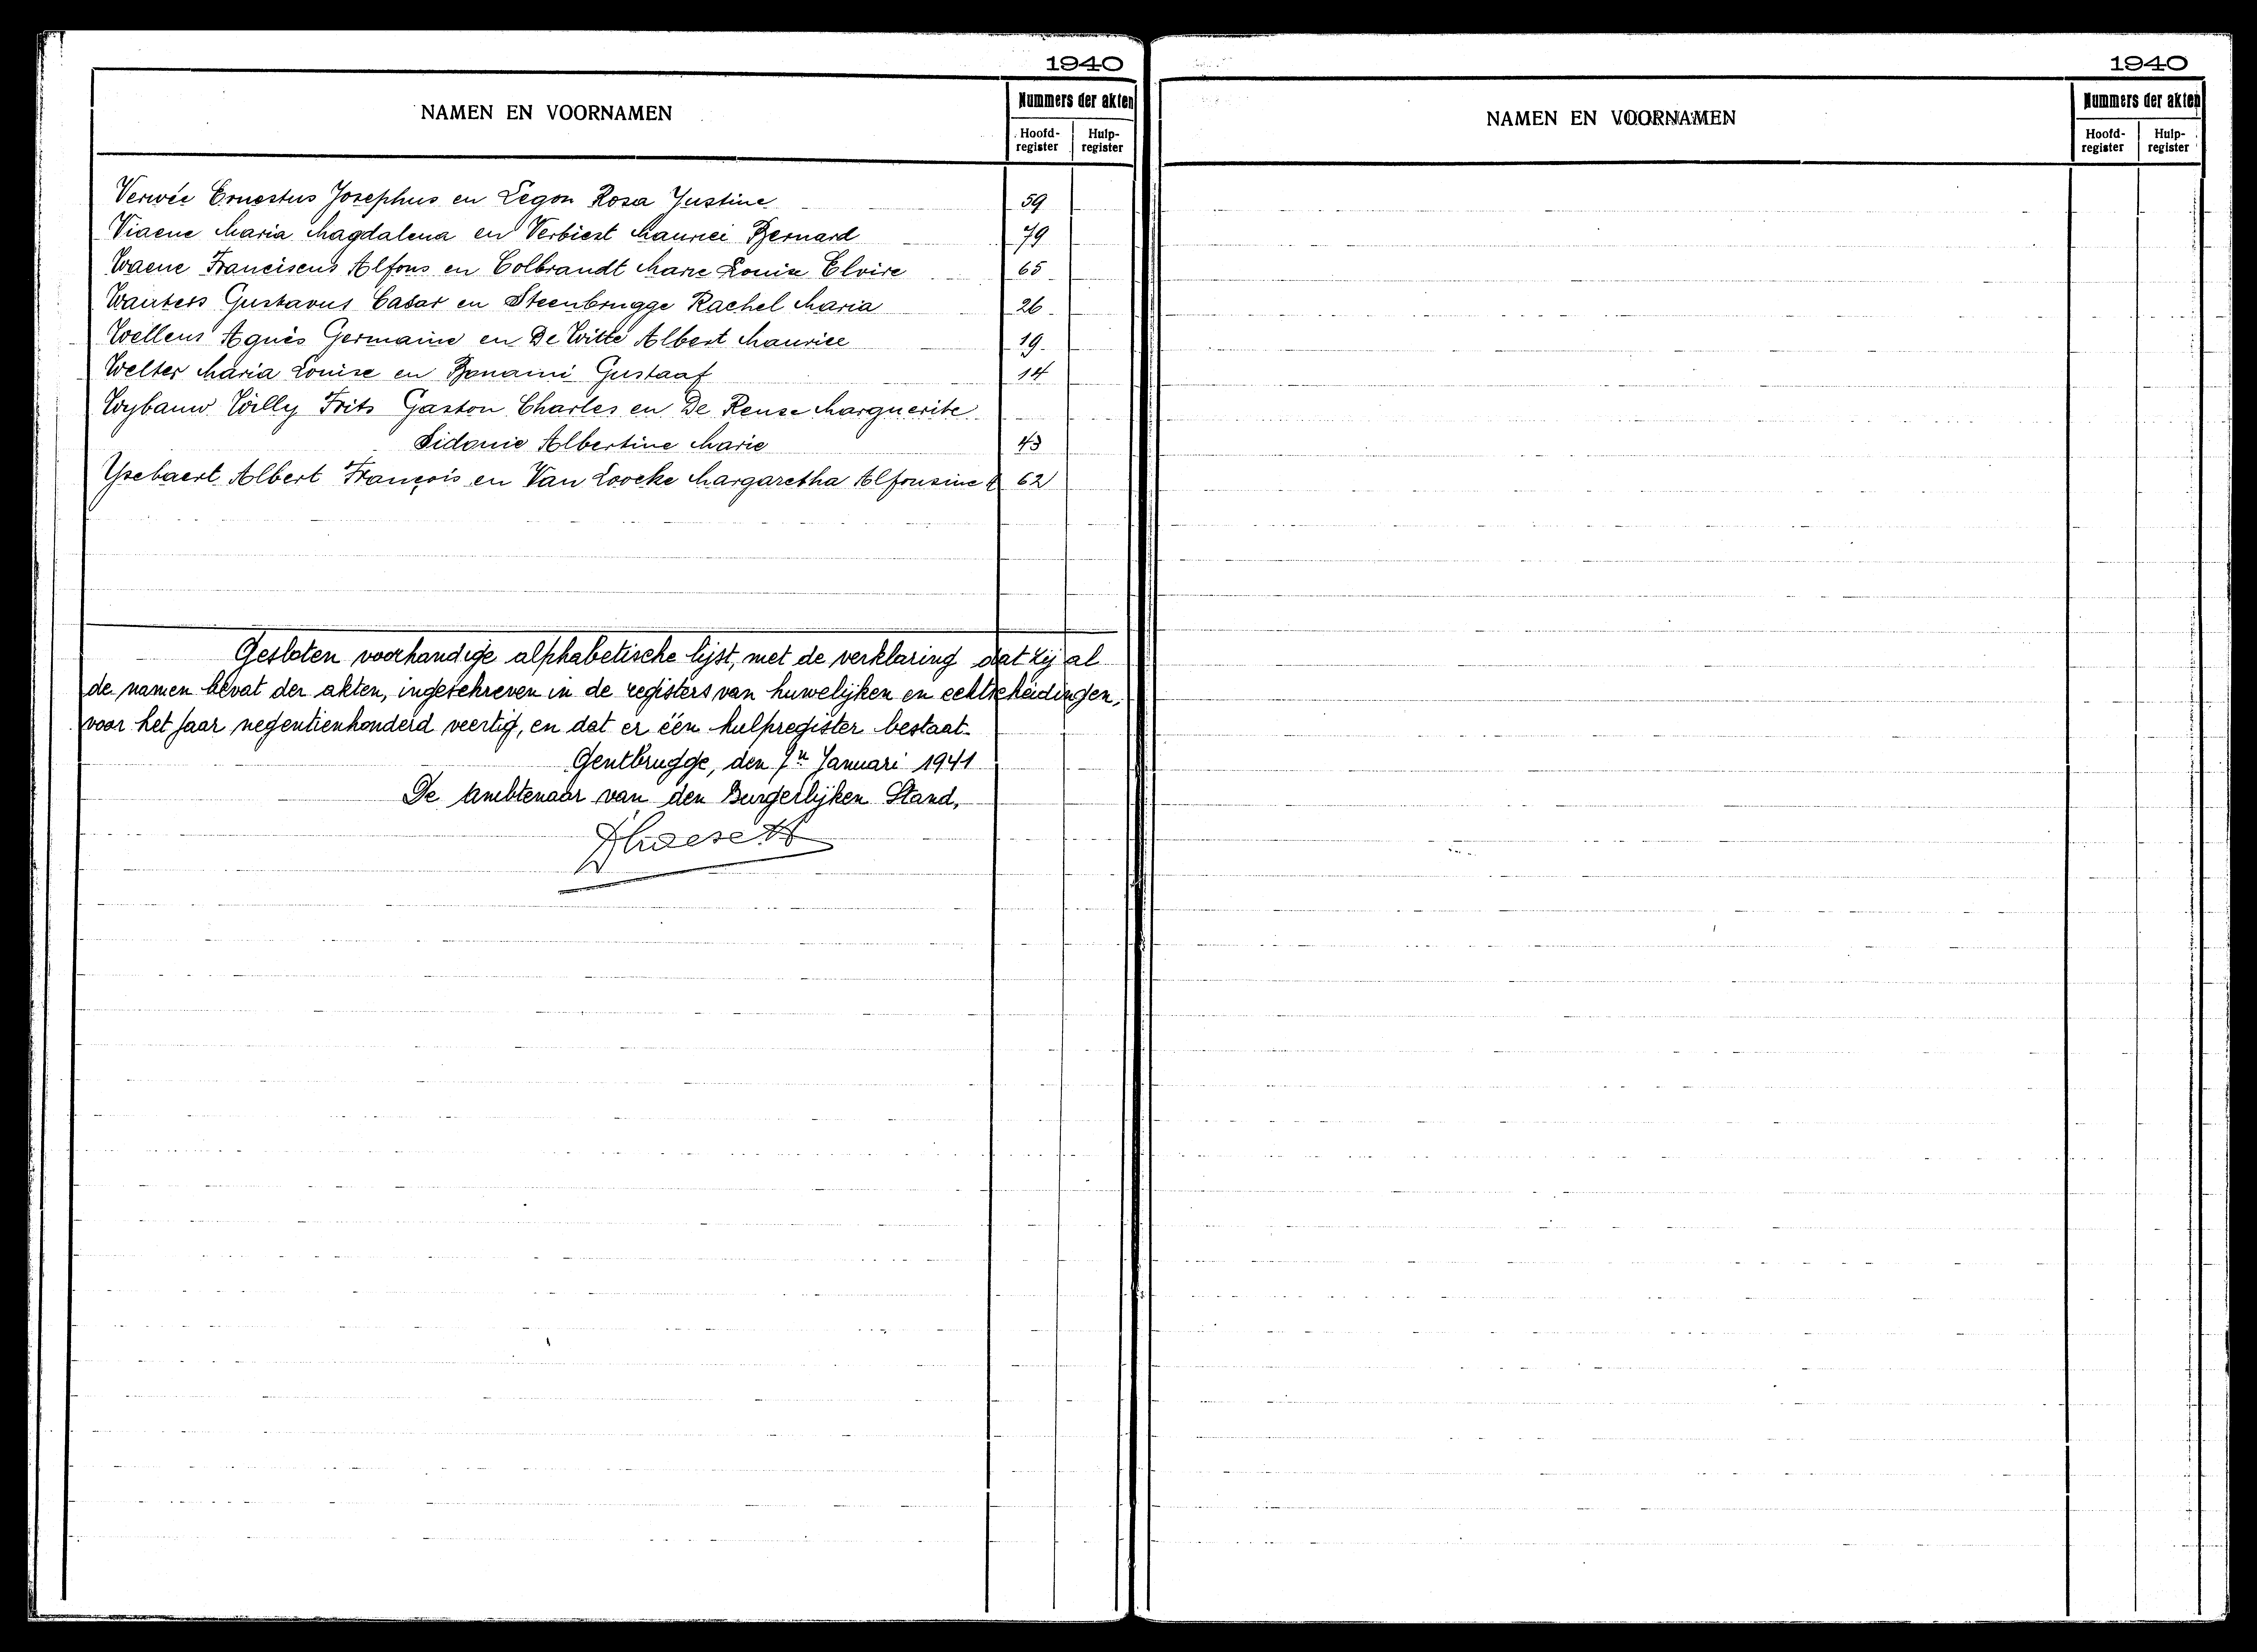 1940
NAMEN EN VOORNAMEN
Nummers der akten
Hoofd-register
Hulp-register
Verwée Ernestus Josephus en Legon Rosa Justine 59
Viaene Maria Magdalena en Verbiest Maurici Bernard 79
Waene Franciscus Alfons en Colbrandt Marie Louise Elvire 65
Wauters Gustavus Cæsar en Steenbrugge Rachel Maria 26
Wellens Agnès Germaine en De Witte Albert Maurice 19
Welter Maria Louise en Bonami Gustaaf 14
Wybauw Willy Frits Gaston Charles en De Reuse Marguerite
Sidonie Albertine Marie 43
Ysebaert Albert François en Van Loocke Margaretha Alfonsine 62
Gesloten voorhandige alphabetische lijst, met de verklaring dat zij al
de namen bevat der akten, ingeschreven in de registers van huwelijken en echtscheidingen,
voor het jaar negentienhonderd veertig, en dat er één hulpregister bestaat.
Gentbrugge, den Januari 1941
De Ambtenaar van den Burgerlijken Stand,
1940
NAMEN EN VOORNAMEN
Nummers der akten
Hoofd-register
Hulp-register